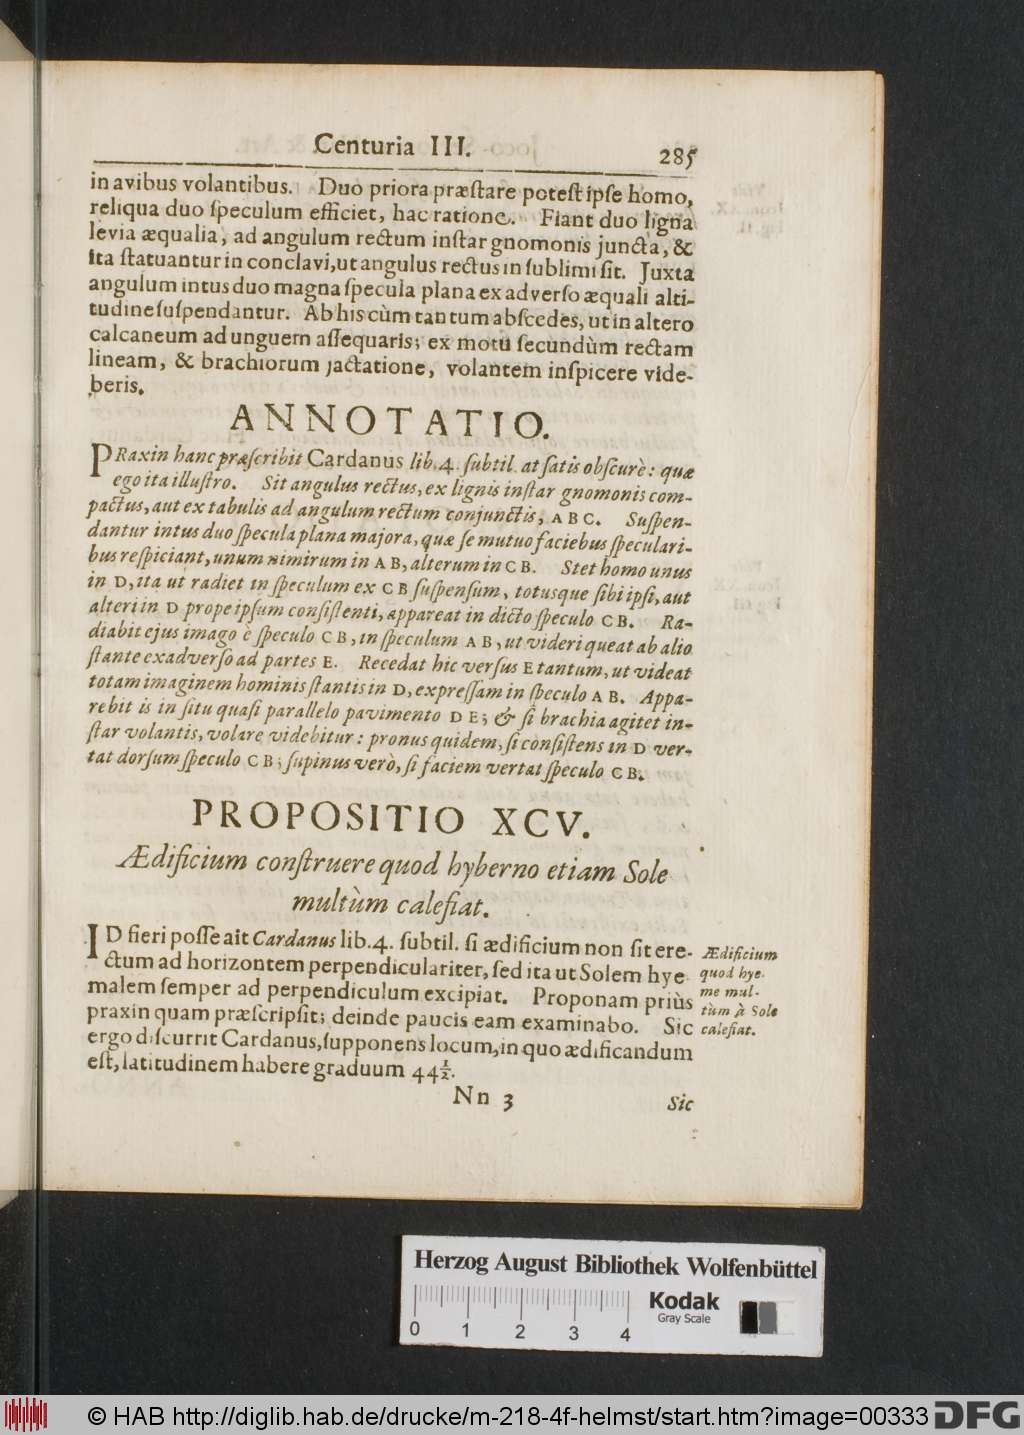 Centuria III. 285
in avibus volantibus. Duo priora præſtare poteſt ipſe homo,
reliqua duo ſpeculum efficiet, hac ratione. Fiant duo ligna
levia æqualia, ad angulum rectum inſtar gnomonis juncta, &
ita ſtatuantur in conclavi, ut angulus rectus in ſublimi ſit. Juxta
angulum intus duo magna ſpecula plana ex adverſo æquali alti-
tudine ſuſpendantur. Ab his cùm tantum abſcedes, ut in altero
calcaneum ad unguem aſſequaris; ex motu ſecundùm rectam
lineam, & brachiorum jactatione, volantem inſpicere vide-
beris.
ANNOTATIO.
PRaxin hanc præſcribit Cardanus lib. 4. ſubtil. at ſatis obſcurè: quæ
ego ita illuſtro. Sit angulus rectus, ex lignis inſtar gnomonis com-
pactus, aut ex tabulis ad angulum rectum conjunctis, A B C. Suſpen-
dantur intus duo ſpecula plana majora, quæ ſe mutuo faciebus ſpeculari-
bus reſpiciant, unum nimirum in A B, alterum in C B. Stet homo unus
in D, ita ut radiet in ſpeculum ex C B ſuſpenſum, totusque ſibi ipſi, aut
alteri in D prope ipſum conſiſtenti, appareat in dicto ſpeculo C B. Ra-
diabit ejus imago è ſpeculo C B, in ſpeculum A B, ut videri queat ab alio
ſtante exadverſo ad partes E. Recedat hic verſus E tantum, ut videat
totam imaginem hominis ſtantis in D, expreſſam in ſpeculo A B. Appa-
rebit is in ſitu quaſi parallelo pavimento D E; & ſi brachia agitet in-
ſtar volantis, volare videbitur: pronus quidem, ſi conſiſtens in D ver-
tat dorſum ſpeculo C B; ſupinus verò, ſi faciem vertat ſpeculo C B.
PROPOSITIO XCV.
Ædificium conſtruere quod hyberno etiam Sole
multùm calefiat.
ID fieri poſſe ait Cardanus lib. 4. ſubtil. ſi ædificium non ſit ere-
ctum ad horizontem perpendiculariter, ſed ita ut Solem hye-
malem ſemper ad perpendiculum excipiat. Proponam priùs
praxin quam præſcripſit; deinde paucis eam examinabo. Sic
ergo diſcurrit Cardanus, ſupponens locum, in quo ædificandum
eſt, latitudinem habere graduum 44½.
Ædificium
quod hye-
me mul-
tùm à Sole
calefiat.
Nn 3 Sic
Herzog August Bibliothek Wolfenbüttel
0 1 2 3 4
Kodak
Gray Scale
© HAB http://diglib.hab.de/drucke/m-218-4f-helmst/start.htm?image=00333
DFG